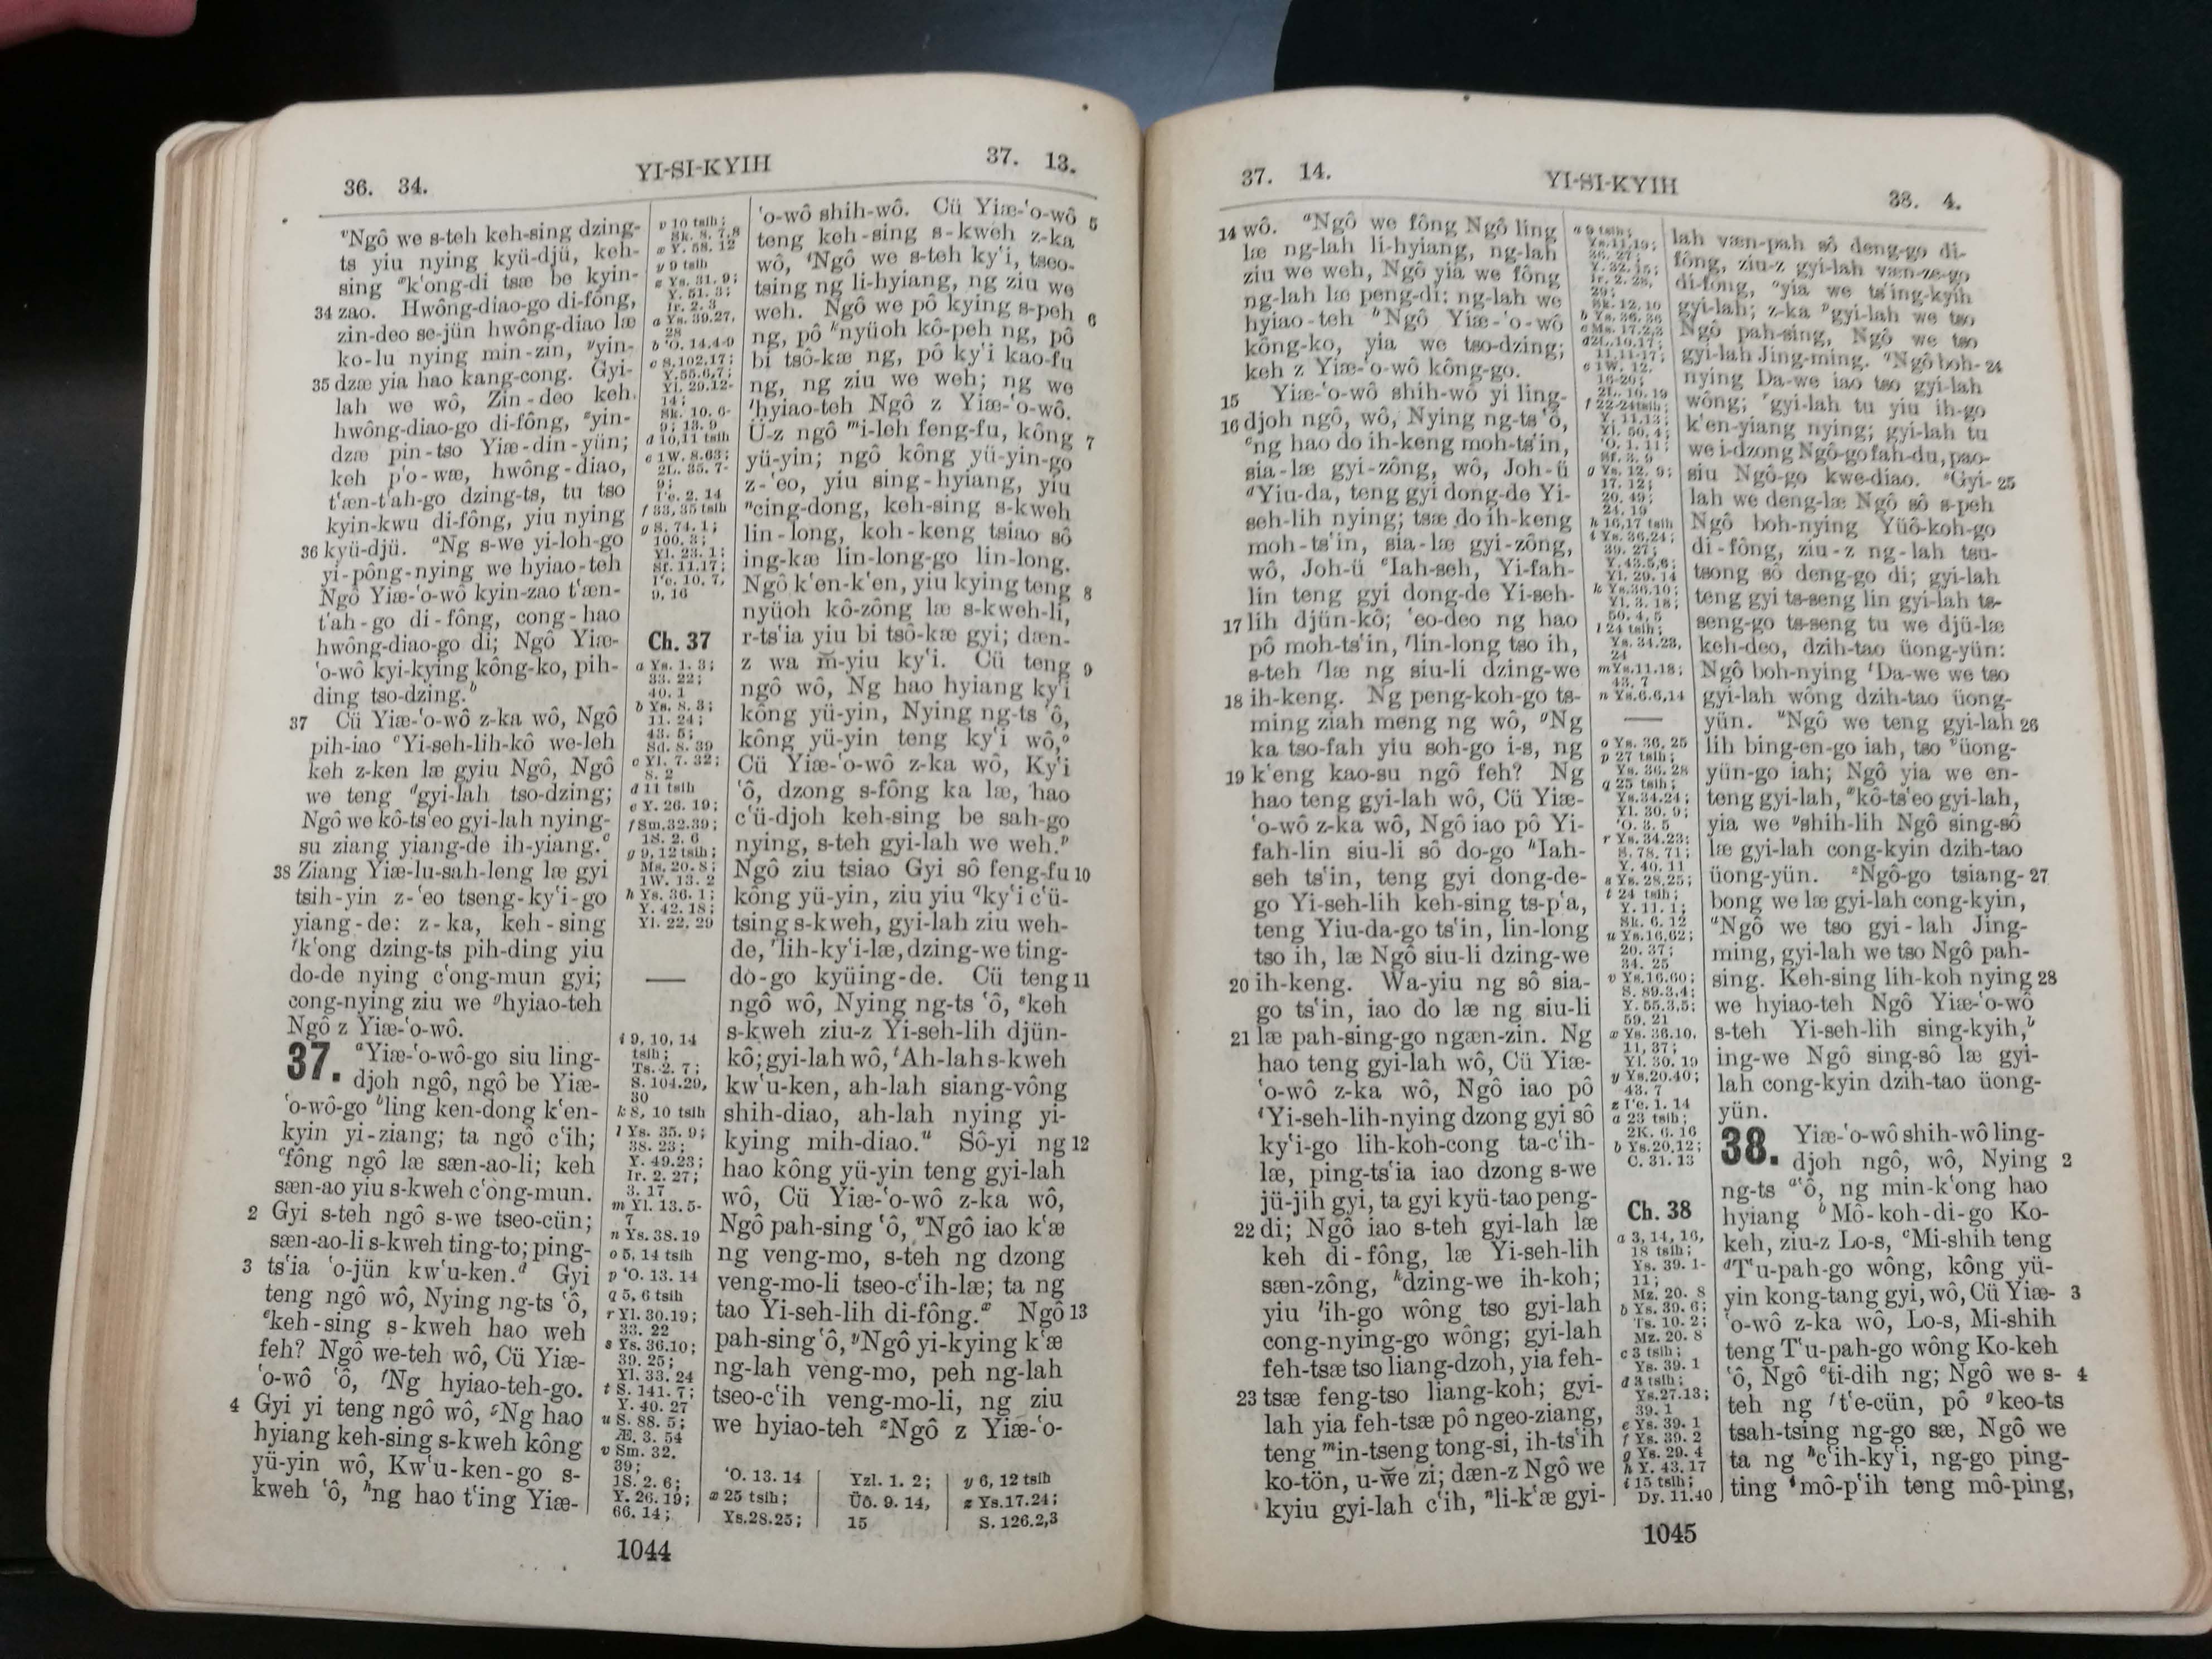 36. 34.
YI-SI-KYIH
37. 13.
ᵛNgô we s-teh keh-sing dzing-
ts yiu nying kyü-djü, keh-
sing ˣk‘ong-di tsæ be kyin-
34 zao. Hwông-diao-go di-fông,
zin-deo se-jün hwông-diao læ
ko-lu nying min-zin, ʸyin-
35 dzæ yia hao kang-cong. Gyi-
lah we wô, Zin-deo keh
hwông-diao-go di-fông, ᶻyin-
dzæ pin-tso Yiæ-din-yün;
keh p‘o-wæ, hwông-diao,
t‘æn-t‘ah-go dzing-ts, tu tso
kyin-kwu di-fông, yiu nying
36 kyü-djü. ᵃNg s-we yi-loh-go
yi-pông-nying we hyiao-teh
Ngô Yiæ-‘o-wô kyin-zao t‘æn-
t‘ah-go di-fông, cong-hao
hwông-diao-go di; Ngô Yiæ-
‘o-wô kyi-kying kông-ko, pih-
ding tso-dzing.ᵇ
37 Cü Yiæ-‘o-wô z-ka wô, Ngô
pih-iao ᶜYi-seh-lih-kô we-leh
keh z-ken læ gyiu Ngô, Ngô
we teng ᵈgyi-lah tso-dzing;
Ngô we kô-ts‘eo gyi-lah nying-
su ziang yiang-de ih-yiang.ᵉ
38 Ziang Yiæ-lu-sah-leng læ gyi
tsih-yin z-‘eo tseng-ky‘i-go
yiang-de: z-ka, keh-sing
ᶠk‘ong dzing-ts pih-ding yiu
do-de nying c‘ong-mun gyi;
cong-nying ziu we ᵍhyiao-teh
Ngô z Yiæ-‘o-wô.
37. ᵃYiæ-‘o-wô-go siu ling-
djoh ngô, ngô be Yiæ-
‘o-wô-go ᵇling ken-dong k‘en-
kyin yi-ziang; ta ngô c‘ih;
ᶜfông ngô læ sæn-ao-li; keh
sæn-ao yiu s-kweh c‘ong-mun.
2 Gyi s-teh ngô s-we tseo-cün;
sæn-ao-li s-kweh ting-to; ping-
3 ts‘ia ‘o-jün kw‘u-ken.ᵈ Gyi
teng ngô wô, Nying ng-ts ‘ô,
ᵉkeh-sing s-kweh hao weh
feh? Ngô we-teh wô, Cü Yiæ-
‘o-wô ‘ô, ᶠNg hyiao-teh-go.
4 Gyi yi teng ngô wô, ᵍNg hao
hyiang keh-sing s-kweh kông
yü-yin wô, Kw‘u-ken-go s-
kweh ‘ô, ʰng hao t‘ing Yiæ-
v 10 tsih;
Sk. 8. 7,8
x Y. 58. 12
y 9 tsih
z Ys. 31. 9;
Y. 51. 3;
Ir. 2. 3
a Ys. 39.27,
28
b ‘O. 14.4-9
c S.102.17;
Y.55.6,7;
Yl. 29.12-
14;
Sk. 10. 6-
9; 13. 9
d 10,11 tsih
e 1W. 8.63;
2L. 35. 7-
9;
I‘e. 2. 14
f 33, 35 tsih
g S. 74. 1;
100. 3;
Yl. 23. 1;
Sf. 11.17;
I‘e. 10. 7,
9, 16
Ch. 37
a Ys. 1. 3;
33. 22;
40. 1
b Ys. 8. 3;
11. 24;
43. 5;
Sd. 8. 39
c Yl. 7. 32;
8. 2
d 11 tsih
e Y. 26. 19;
f Sm.32.39;
1S. 2. 6
g 9, 12 tsih;
Ms. 20. 8;
1W. 13. 2
h Ys. 36. 1;
Y. 42. 18;
Yl. 22. 29
i 9, 10, 14
tsih;
Ts. 2. 7;
S. 104.29,
30
k 8, 10 tsih
l Ys. 35. 9;
38. 23;
Y. 49.23;
Ir. 2. 27;
3. 17
m Yl. 13. 5-
7
n Ys. 38.19
o 5, 14 tsih
p ‘O. 13. 14
q 5, 6 tsih
r Yl. 30.19;
33. 22
s Ys. 36.10;
39. 25;
Yl. 33. 24
t S. 141. 7;
Y. 40. 27
u S. 88. 5;
Æ. 3. 54
v Sm. 32.
39;
1S. 2. 6;
Y. 26. 19;
66. 14;
‘o-wô shih-wô. Cü Yiæ-‘o-wô 5
teng keh-sing s-kweh z-ka
wô, ⁱNgô we s-teh ky‘i, tseo-
tsing ng li-hyiang, ng ziu we
weh. Ngô we pô kying s-peh 6
ng, pô ᵏnyüoh kô-peh ng, pô
bi tsô-kæ ng, pô ky‘i kao-fu
ng, ng ziu we weh; ng we
ˡhyiao-teh Ngô z Yiæ-‘o-wô.
Ü-z ngô ᵐi-leh feng-fu, kông 7
yü-yin; ngô kông yü-yin-go
z-‘eo, yiu sing-hyiang, yiu
ⁿcing-dong, keh-sing s-kweh
lin-long, koh-keng tsiao sô
ing-kæ lin-long-go lin-long.
Ngô k‘en-k‘en, yiu kying teng 8
nyüoh kô-zông læ s-kweh-li,
r-ts‘ia yiu bi tsô-kæ gyi; dæn-
z wa m̆-yiu ky‘i. Cü teng 9
ngô wô, Ng hao hyiang ky‘i
kông yü-yin, Nying ng-ts ‘ô,
kông yü-yin teng ky‘i wô,ᵒ
Cü Yiæ-‘o-wô z-ka wô, Ky‘i
‘ô, dzong s-fông ka læ, hao
c‘ü-djoh keh-sing be sah-go
nying, s-teh gyi-lah we weh.ᵖ
Ngô ziu tsiao Gyi sô feng-fu 10
kông yü-yin, ziu yiu ᑫky‘i c‘ü-
tsing s-kweh, gyi-lah ziu weh-
de, ʳlih-ky‘i-læ, dzing-we ting-
do-go kyüing-de. Cü teng 11
ngô wô, Nying ng-ts ‘ô, ˢkeh
s-kweh ziu-z Yi-seh-lih djün-
kô; gyi-lah wô, ᵗAh-lah s-kweh
kw‘u-ken, ah-lah siang-vông
shih-diao, ah-lah nying yi-
kying mih-diao.ᵘ Sô-yi ng 12
hao kông yü-yin teng gyi-lah
wô, Cü Yiæ-‘o-wô z-ka wô,
Ngô pah-sing ‘ô, ᵛNgô iao k‘æ
ng veng-mo, s-teh ng dzong
veng-mo-li tseo-c‘ih-læ; ta ng
tao Yi-seh-lih di-fông.ˣ Ngô 13
pah-sing ‘ô, ʸNgô yi-kying k‘æ
ng-lah veng-mo, peh ng-lah
tseo-c‘ih veng-mo-li, ng ziu
we hyiao-teh ᶻNgô z Yiæ-‘o-
‘O. 13. 14
x 25 tsih;
Ys.28.25;
Yzl. 1. 2;
Üô. 9. 14,
15
y 6, 12 tsih
z Ys.17.24;
S. 126.2,3
1044
37. 14.
YI-SI-KYIH
38. 4.
14 wô. ᵃNgô we fông Ngô ling
læ ng-lah li-hyiang, ng-lah
ziu we weh, Ngô yia we fông
ng-lah læ peng-di: ng-lah we
hyiao-teh ᵇNgô Yiæ-‘o-wô
kông-ko, yia we tso-dzing;
keh z Yiæ-‘o-wô kông-go.
15 Yiæ-‘o-wô shih-wô yi ling-
16 djoh ngô, wô, Nying ng-ts ‘ô,
ᶜng hao do ih-keng moh-ts‘in,
sia-læ gyi-zông, wô, Joh-ü
ᵈYiu-da, teng gyi dong-de Yi-
seh-lih nying; tsæ do ih-keng
moh-ts‘in, sia-læ gyi-zông,
wô, Joh-ü ᵉIah-seh, Yi-fah-
lin teng gyi dong-de Yi-seh-
17 lih djün-kô; ‘eo-deo ng hao
pô moh-ts‘in, ᶠlin-long tso ih,
s-teh ᶠlæ ng siu-li dzing-we
18 ih-keng. Ng peng-koh-go ts-
ming ziah meng ng wô, ᵍNg
ka tso-fah yiu soh-go i-s, ng
19 k‘eng kao-su ngô feh? Ng
hao teng gyi-lah wô, Cü Yiæ-
‘o-wô z-ka wô, Ngô iao pô Yi-
fah-lin siu-li sô do-go ʰIah-
seh ts‘in, teng gyi dong-de-
go Yi-seh-lih keh-sing ts-p‘a,
teng Yiu-da-go ts‘in, lin-long
tso ih, læ Ngô siu-li dzing-we
20 ih-keng. Wa-yiu ng sô sia-
go ts‘in, iao do læ ng siu-li
21 læ pah-sing-go ngæn-zin. Ng
hao teng gyi-lah wô, Cü Yiæ-
‘o-wô z-ka wô, Ngô iao pô
ⁱYi-seh-lih-nying dzong gyi sô
ky‘i-go lih-koh-cong ta-c‘ih-
læ, ping-ts‘ia iao dzong s-we
jü-jih gyi, ta gyi kyü-tao peng-
22 di; Ngô iao s-teh gyi-lah læ
keh di-fông, læ Yi-seh-lih
sæn-zông, ᵏdzing-we ih-koh;
yiu ˡih-go wông tso gyi-lah
cong-nying-go wông; gyi-lah
feh-tsæ tso liang-dzoh, yia feh-
23 tsæ feng-tso liang-koh; gyi-
lah yia feh-tsæ pô ngeo-ziang,
teng ᵐin-tseng tong-si, ih-ts‘ih
ko-tön, u-w̆e zi; dæn-z Ngô we
kyiu gyi-lah c‘ih, ⁿli-k‘æ gyi-
a 9 tsih;
Ys.11.19;
36. 27;
Y. 32. 15;
Ir. 2. 28,
29;
Sk. 12. 10
b Ys. 36. 36
c Ms. 17.2,3
d 2L.10.17;
11.11-17;
e 1W. 12.
16-20;
2L. 10. 19
f 22-24tsih;
Y. 11.13;
Yl. 50. 4;
‘O. 1. 11;
Sf. 3. 9
g Ys. 12. 9;
17. 12;
20. 49;
24. 19
h 16,17 tsih
i Ys. 36.24;
39. 27;
Y. 43.5,6;
Yl. 29. 14
k Ys.36.10;
Yl. 3. 18;
50. 4, 5
l 24 tsih;
Ys. 34.23,
24
m Ys.11.18;
43. 7
n Ys.6.6,14
o Ys. 36. 25
p 27 tsih;
Ys. 36. 28
q 25 tsih;
Ys.34.24;
Yl. 30. 9;
‘O. 3. 5
r Ys. 34.23;
S. 78. 71;
Y. 40. 11
s Ys. 28.25;
t 24 tsih;
Y. 11. 1;
Sk. 6. 12
u Ys.16.62;
20. 37;
34. 25
v Ys.16.60;
S. 89.3,4;
Y. 55.3,5;
59. 21
x Ys. 36.10,
11, 37;
Yl. 30. 19
y Ys.20.40;
43. 7
z I‘e. 1. 14
a 23 tsih;
2K. 6. 16
b Ys.20.12;
C. 31. 13
Ch. 38
a 3, 14, 16,
18 tsih;
Ys. 39. 1-
11;
Mz. 20. 8
b Ys. 39. 6;
Ts. 10. 2;
Mz. 20. 8
c 3 tsih;
Ys. 39. 1
d 3 tsih;
Ys.27.13;
39. 1
e Ys. 39. 1
f Ys. 39. 2
g Ys. 29. 4
h Y. 43. 17
i 15 tsih;
Dy. 11.40
lah væn-pah sô deng-go di-
fông, ziu-z gyi-lah væn-ze-go
di-fông, ᵒyia we ts‘ing-kyih
gyi-lah; z-ka ᵖgyi-lah we tso
Ngô pah-sing, Ngô we tso
gyi-lah Jing-ming. ᑫNgô boh- 24
nying Da-we iao tso gyi-lah
wông; ʳgyi-lah tu yiu ih-go
k‘en-yiang nying; gyi-lah tu
we i-dzong Ngô-go fah-du, pao-
siu Ngô-go kwe-diao. ˢGyi- 25
lah we deng-læ Ngô sô s-peh
Ngô boh-nying Yüô-koh-go
di-fông, ziu-z ng-lah tsu-
tsong sô deng-go di; gyi-lah
teng gyi ts-seng lin gyi-lah ts-
seng-go ts-seng tu we djü-læ
keh-deo, dzih-tao üong-yün:
Ngô boh-nying ᵗDa-we we tso
gyi-lah wông dzih-tao üong-
yün. ᵘNgô we teng gyi-lah 26
lih bing-en-go iah, tso ᵛüong-
yün-go iah; Ngô yia we en-
teng gyi-lah, ˣkô-ts‘eo gyi-lah,
yia we ʸshih-lih Ngô sing-sô
læ gyi-lah cong-kyin dzih-tao
üong-yün. ᶻNgô-go tsiang- 27
bong we læ gyi-lah cong-kyin,
ᵃNgô we tso gyi-lah Jing-
ming, gyi-lah we tso Ngô pah-
sing. Keh-sing lih-koh nying 28
we hyiao-teh Ngô Yiæ-‘o-wô
s-teh Yi-seh-lih sing-kyih,ᵇ
ing-we Ngô sing-sô læ gyi-
lah cong-kyin dzih-tao üong-
yün.
38. Yiæ-‘o-wô shih-wô ling-
djoh ngô, wô, Nying 2
ng-ts ᵃ‘ô, ng min-k‘ong hao
hyiang ᵇMô-koh-di-go Ko-
keh, ziu-z Lo-s, ᶜMi-shih teng
ᵈT‘u-pah-go wông, kông yü-
yin kong-tang gyi, wô, Cü Yiæ- 3
‘o-wô z-ka wô, Lo-s, Mi-shih
teng T‘u-pah-go wông Ko-keh
‘ô, Ngô ᵉti-dih ng; Ngô we s- 4
teh ng ᶠt‘e-cün, pô ᵍkeo-ts
tsah-tsing ng-go sæ, Ngô we
ta ng ʰc‘ih-ky‘i, ng-go ping-
ting ⁱmô-p‘ih teng mô-ping,
1045